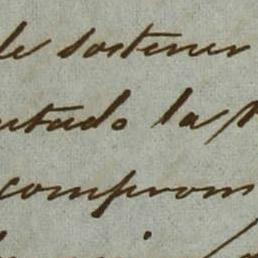 de sostener
utado la
comprom